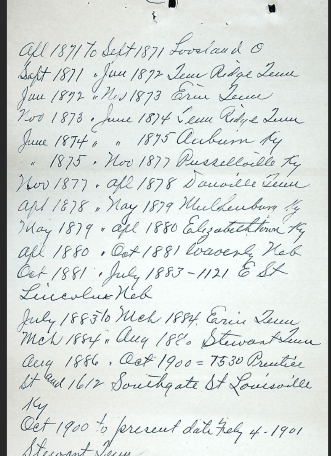 Apl 1871 to Sept 1871 Loveland O
Sept 1871 " Jan 1872 Tenn Ridge Tenn
Jan 1872 " Nov 1873 Erin Tenn
Nov 1873 " June 1874 Tenn Ridge Tenn
June 1874 " " 1875 Auburn Ky
" 1875 " Nov 1877 Russellville Ky
Nov 1877 " Apl 1878 Danville Tenn
Apl 1878 " May 1879 Muldenburg Ky
May 1879 " Apl 1880 Elizabethtown Ky
Apl 1880 " Oct 1881 Waverly Neb
Oct 1881 " July 1883 - 1121 E St
Lincoln Neb
July 1883 to Mch 1884 Erin Tenn
Mch 1884 " Aug 1886 Stewart Tenn
Aug 1886 " Oct 1900 = 1530 Prentice
St and 1612 Southgate St Louisville
Ky
Oct 1900 to present date Feby 4 - 1901
Stewart Tenn